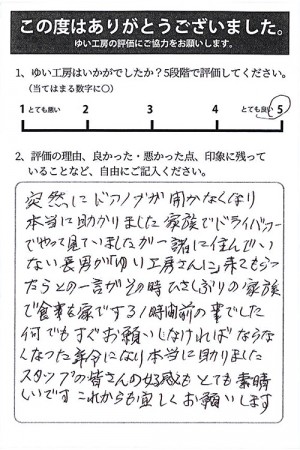 この度はありがとうございました。
ゆい工房の評価にご協力をお願いします。
1、ゆい工房はいかがでしたか？5段階で評価してください。
（当てはまる数字に○）
1 とても悪い 2 3 4 とても良い 5
2、評価の理由、良かった・悪かった点、印象に残って
いることなど、自由にご記入ください。
突然にドアノブが開かなくなり
本当に助かりました 家族でドライバー
でやって見ていましたが一諸に住んでい
ない長男が「ゆい工房さんに」来てもらっ
たらとの一言が その時ひさしぶりの家族
で食事を家でする1時間前の事でした
何でもすぐお願いしなければならな
くなった年令になり本当に助りました
スタッフの皆さんの好感も とても素晴
しいです これからも宜しくお願いします